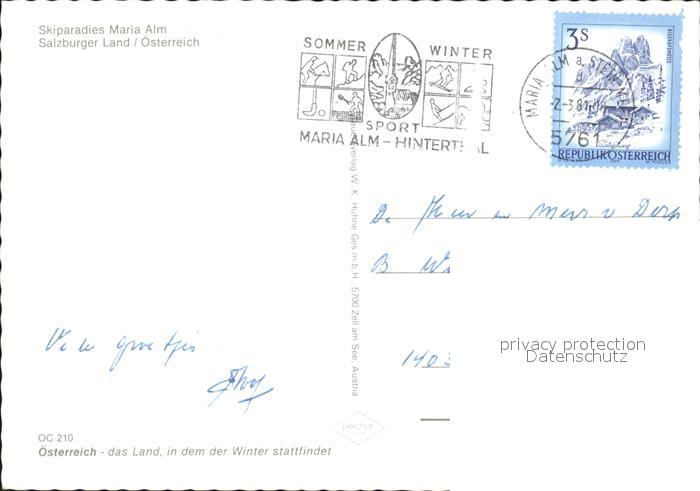 Skiparadies Maria Alm
Salzburger Land / Österreich
SOMMER WINTER
SPORT
MARIA ALM – HINTERTHAL
MARIA ALM a. STEIN
-2.-3.81
5761
3 S
REPUBLIK ÖSTERREICH
W. K. Huhne Ges.m.b.H., 5700 Zell am See, Austria
De Heer en Mevr v Dorp
B
1403
privacy protection
Datenschutz
Vele groetjes
OC 210
Österreich - das Land, in dem der Winter stattfindet
pechar